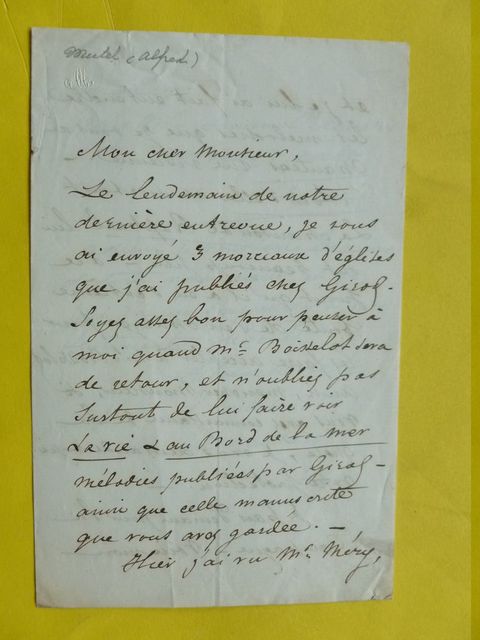 Mutel (Alfred)
Mon cher Monsieur,
Le lendemain de notre
dernière entrevue, je vous
ai envoyé 3 morceaux d'églises
que j'ai publiés chez Girod -
Soyez assez bon pour penser à
moi quand Mr. Boisselot sera
de retour, et n'oubliez pas
surtout de lui faire voir
La vie & au Bord de la mer
mélodies publiées par Girod -
ainsi que celle manuscrite
que vous avez gardée. -
Hier j'ai vu Mr. Méry,